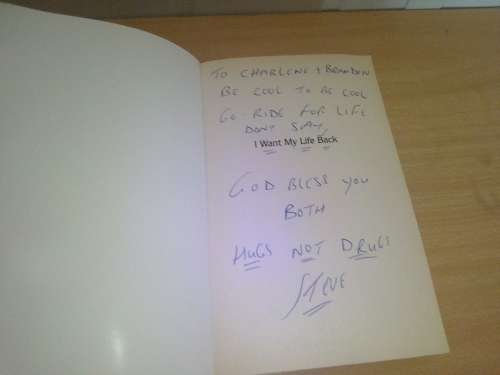 TO CHARLENE + BRANDON
BE COOL TO BE COOL
GO RIDE FOR LIFE
DONT SAY,
I Want My Life Back
GOD BLESS YOU
BOTH
HUGS NOT DRUGS
STEVE